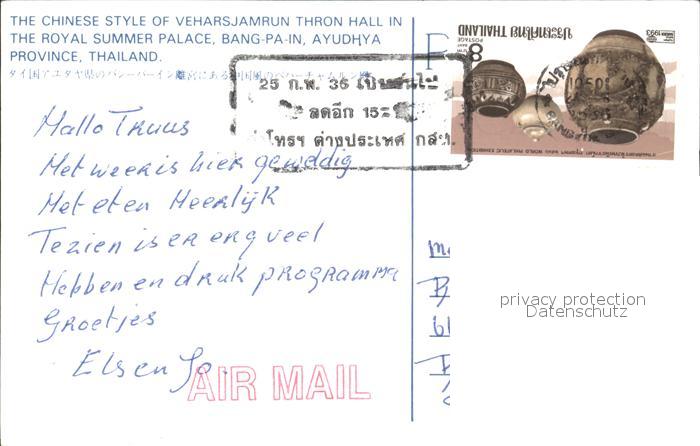 THE CHINESE STYLE OF VEHARSJAMRUN THRON HALL IN
THE ROYAL SUMMER PALACE, BANG-PA-IN, AYUDHYA
PROVINCE, THAILAND.
タイ国アユタヤ県のバンパーイン離宮にある中国風の
25 ก.พ. 36
ลดอีก 15
โทรฯ ต่างประเทศ กสท.
8
BAHT
POSTAGE
ประเทศไทย THAILAND
1993
Hallo Truus
Het weer is hier geweldig
Het eten Heerlijk
Te zien is er erg veel
Hebben en druk programma
Groetjes
Els en Jo.
AIR MAIL
privacy protection
Datenschutz